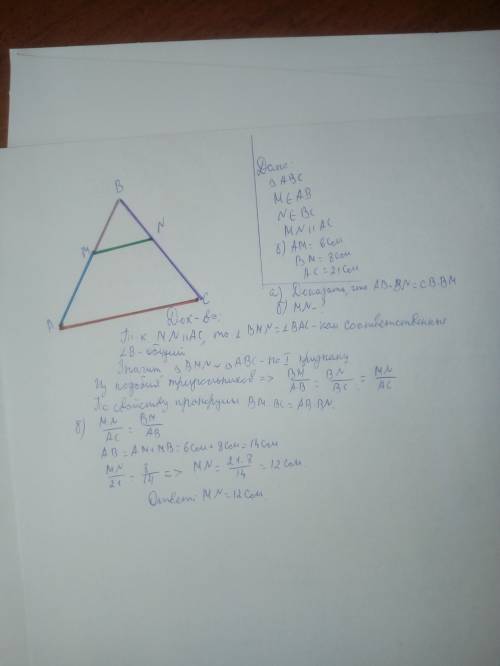 B
M
N
A
C
Дано:
△ABC
M∈AB
N∈BC
MN||AC
б) AM = 6см
BM = 8см
AC = 21см
а) Доказать, что AB·BN = CB·BM
б) MN-?
Док-во:
Т.к MN||AC, то ∠BMN=∠BAC-как соответственные
∠B-общий
Значит △BMN ∾ △ABC-по I признаку
Из подобия треугольников => BM/AB = BN/BC = MN/AC
По свойству пропорции BM·BC=AB·BN.
б) MN/AC = BM/AB
AB=AM+MB=6см+8см=14см
MN/21 = 8/14 => MN = 21·8/14 = 12см.
Ответ: MN=12см.